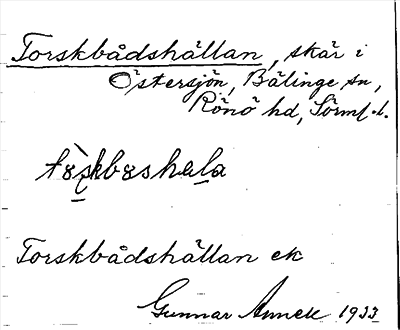 Torskbådshällan, skär i
Östersjön, Bälinge sn,
Rönö hd, Sörml. l.
Torskbådshällan ek
Gunnar Annell 1933